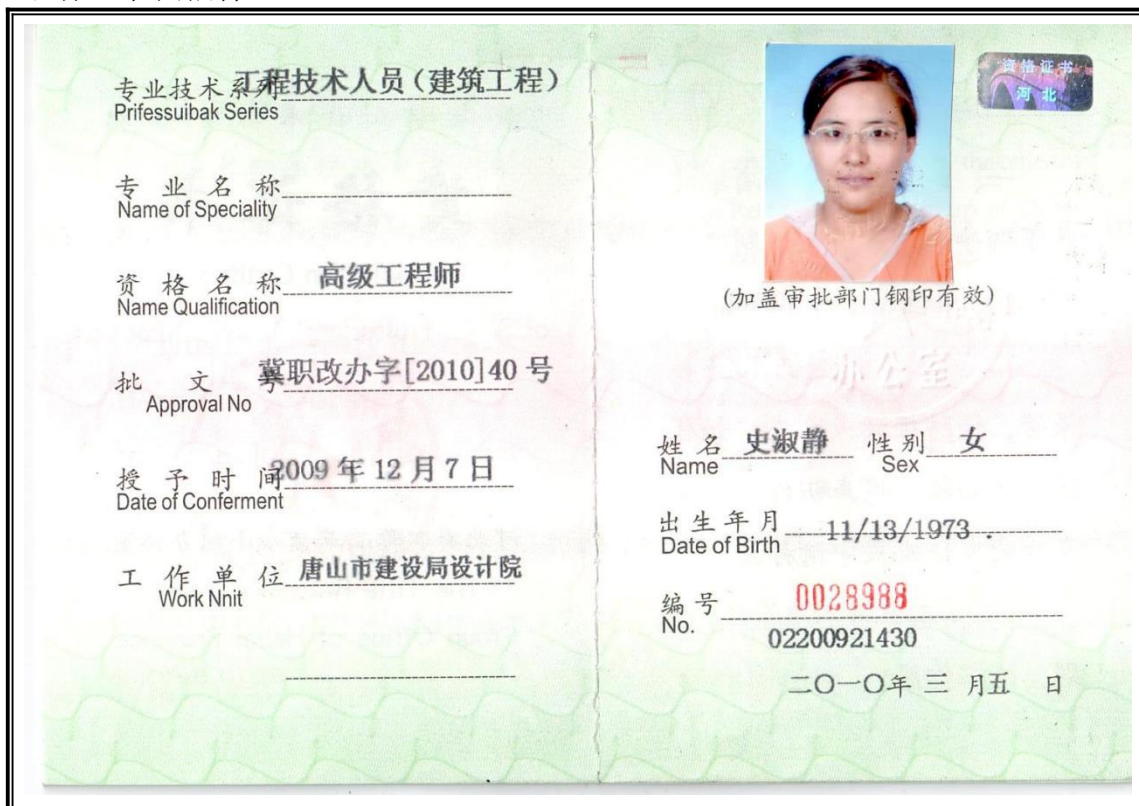 专业技术系列 工程技术人员（建筑工程）
Prifessuibak Series
专业名称
Name of Speciality
资格名称 高级工程师
Name Qualification
批文号 冀职改办字[2010]40 号
Approval No
授予时间 2009 年 12 月 7 日
Date of Conferment
工作单位 唐山市建设局设计院
Work Nnit
资格证书
河北
(加盖审批部门钢印有效)
办公室
姓名 史淑静 性别 女
Name Sex
出生年月 11/13/1973 .
Date of Birth
编号 0028988
No.
02200921430
二〇一〇年 三 月五 日